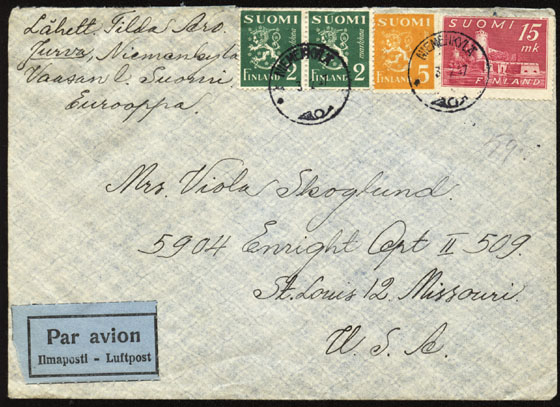 Lähett. Tilda Aro.
Jurva, Niemenkylä
Vaasan l. Suomi,
Eurooppa.
SUOMI
FINLAND 2
SUOMI
FINLAND 2
SUOMI
FINLAND 5
SUOMI 15
mk
FINLAND
Mrs. Viola Skoglund.
5904 Enright Apt II 509.
St. Louis 12. Missouri.
U. S. A.
Par avion
Ilmaposti - Luftpost